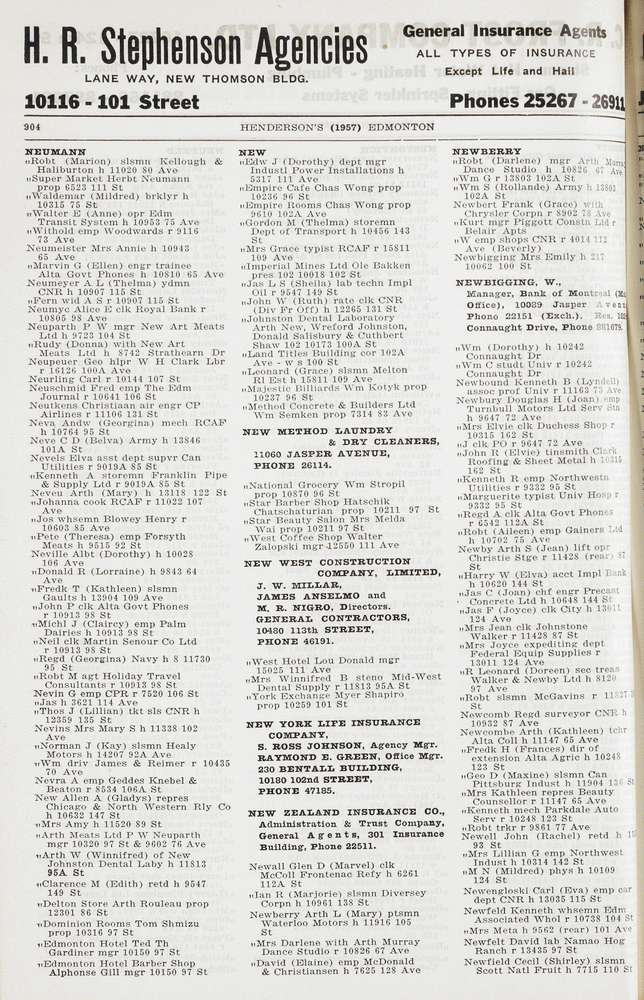 H. R. Stephenson Agencies
LANE WAY, NEW THOMSON BLDG.
10116 - 101 Street
General Insurance Agents
ALL TYPES OF INSURANCE
Except Life and Hail
Phones 25267 - 26911
904 HENDERSON'S (1957) EDMONTON
NEUMANN
„Robt (Marion) slsmn Kellough &
Haliburton h 11020 80 Ave
„Super Market Herbt Neumann
prop 6523 111 St
„Waldemar (Mildred) brklyr h
10315 75 St
„Walter E (Anne) opr Edm
Transit System h 10953 75 Ave
„Withold emp Woodwards r 9116
73 Ave
Neumeister Mrs Annie h 10943
65 Ave
„Marvin G (Ellen) engr trainee
Alta Govt Phones h 10810 65 Ave
Neumeyer A L (Thelma) ydmn
CNR h 10907 115 St
„Fern wid A S r 10907 115 St
Neumyc Alice E clk Royal Bank r
10805 98 Ave
Neuparth P W mgr New Art Meats
Ltd h 9723 104 St
„Rudy (Donna) with New Art
Meats Ltd h 8742 Strathearn Dr
Neupeuer Geo hlpr W H Clark Lbr
r 16126 100A Ave
Neurling Carl r 10144 107 St
Neuschmid Fred emp The Edm
Journal r 10641 106 St
Neutkens Christiaan air engr CP
Airlines r 11106 131 St
Neva Andw (Georgina) mech RCAF
h 10764 95 St
Neve C D (Belva) Army h 13846
101A St
Nevels Elva asst dept supvr Can
Utilities r 9019A 85 St
„Kenneth A storemn Franklin Pipe
& Supply Ltd r 9019A 85 St
Neveu Arth (Mary) h 13118 122 St
„Johanna cook RCAF r 11022 107
Ave
„Jos whsemn Blowey Henry r
10603 85 Ave
„Pete (Theresa) emp Forsyth
Meats h 9515 92 St
Neville Albt (Dorothy) h 10028
106 Ave
„Donald R (Lorraine) h 9843 64
Ave
„Fredk T (Kathleen) slsmn
Gaults h 13904 109 Ave
„John P clk Alta Govt Phones
r 10913 98 St
„Michl J (Clairy) emp Palm
Dairies h 10913 98 St
„Neil clk Martin Senour Co Ltd
r 10913 98 St
„Regd (Georgina) Navy h 8 11730
95 St
„Robt M agt Holiday Travel
Consultants r 10913 98 St
Nevin G emp CPR r 7520 106 St
„Jas h 3621 114 Ave
„Thos J (Lillian) tkt sls CNR h
12359 135 St
Nevins Mrs Mary S h 11338 102
Ave
„Norman J (Kay) slsmn Healy
Motors h 14207 92A Ave
„Wm driv James & Reimer r 10435
70 Ave
Nevra A emp Geddes Knebel &
Beaton r 8534 106A St
New Allen A (Gladys) repres
Chicago & North Western Rly Co
h 10632 147 St
„Mrs Amy h 11520 89 St
„Arth Meats Ltd P W Neuparth
mgr 10320 97 St & 9602 76 Ave
„Arth W (Winnifred) of New
Johnston Dental Laby h 11813
95A St
„Clarence M (Edith) retd h 9547
149 St
„Delton Store Arth Rouleau prop
12301 86 St
„Dominion Rooms Tom Shmizu
prop 10316 97 St
„Edmonton Hotel Ted Th
Gardiner mgr 10150 97 St
„Edmonton Hotel Barber Shop
Alphonse Gill mgr 10150 97 St
NEW
„Edw J (Dorothy) dept mgr
Industl Power Installations h
5317 111 Ave
„Empire Cafe Chas Wong prop
10236 96 St
„Empire Rooms Chas Wong prop
9610 102A Ave
„Gordon M (Thelma) storemn
Dept of Transport h 10456 143
St
„Mrs Grace typist RCAF r 15811
109 Ave
„Imperial Mines Ltd Ole Bakken
pres 102 10018 102 St
„Jas L S (Sheila) lab techn Impl
Oil r 9547 149 St
„John W (Ruth) rate clk CNR
(Div Fr Off) h 12265 131 St
„Johnston Dental Laboratory
Arth New, Wreford Johnston,
Donald Salisbury & Cuthbert
Shaw 102 10173 100A St
„Land Titles Building cor 102A
Ave - w s 100 St
„Leonard (Grace) slsmn Melton
Rl Est h 15811 109 Ave
„Majestic Billiards Wm Kotyk prop
10237 96 St
„Method Concrete & Builders Ltd
Wm Semken prop 7314 83 Ave
NEW METHOD LAUNDRY
& DRY CLEANERS,
11060 JASPER AVENUE,
PHONE 26114.
„National Grocery Wm Stropil
prop 10870 96 St
„Star Barber Shop Hatschik
Chatschaturian prop 10211 97 St
„Star Beauty Salon Mrs Melda
Wai prop 10211 97 St
„West Coffee Shop Walter
Zalopski mgr 12550 111 Ave
NEW WEST CONSTRUCTION
COMPANY, LIMITED,
J. W. MILLAR,
JAMES ANSELMO and
M. R. NIGRO, Directors.
GENERAL CONTRACTORS,
10480 113th STREET,
PHONE 46191.
„West Hotel Lou Donald mgr
15025 111 Ave
„Mrs Winnifred B steno Mid-West
Dental Supply r 11813 95A St
„York Exchange Myer Shapiro
prop 10259 101 St
NEW YORK LIFE INSURANCE
COMPANY,
S. ROSS JOHNSON, Agency Mgr.
RAYMOND E. GREEN, Office Mgr.
230 BENTALL BUILDING,
10180 102nd STREET,
PHONE 47185.
NEW ZEALAND INSURANCE CO.,
Administration & Trust Company,
General Agents, 301 Insurance
Building, Phone 22511.
Newall Glen D (Marvel) clk
McColl Frontenac Refy h 6261
112A St
„Ian R (Marjorie) slsmn Diversey
Corpn h 10961 138 St
Newberry Arth L (Mary) ptsmn
Waterloo Motors h 11916 105
St
„Mrs Darlene with Arth Murray
Dance Studio r 10826 67 Ave
„David (Elaine) emp McDonald
& Christiansen h 7625 128 Ave
NEWBERRY
„Robt (Darlene) mgr Arth Murray
Dance Studio h 10826 67 Ave
„Wm G r 13803 102A St
„Wm S (Rollande) Army h 13801
102A St
Newbert Frank (Grace) with
Chrysler Corpn r 8902 78 Ave
„Kurt mgr Piggott Constn Ltd r
Belair Apts
„W emp shops CNR r 4014 112
Ave (Beverly)
Newbigging Mrs Emily h 217
10062 100 St
NEWBIGGING, W.,
Manager, Bank of Montreal
Office), 10089 Jasper
Phone 22151 (Exch.). Res.
Connaught Drive, Phone 881679.
„Wm (Dorothy) h 10242
Connaught Dr
„Wm C studt Univ r 10242
Connaught Dr
Newbound Kenneth B (Lyndell)
assoc prof Univ r 11163 73 Ave
Newbury Douglas H (Joan) emp
Turnbull Motors Ltd Serv Stn
h 9647 72 Ave
„Mrs Elvie clk Duchess Shop r
10315 162 St
„J clk PO r 9647 72 Ave
„John R (Elvie) tinsmith Clark
Roofing & Sheet Metal h 10315
162 St
„Kenneth R emp Northwestn
Utilities r 9332 95 St
„Marguerite typist Univ Hosp r
9332 95 St
„Regd A clk Alta Govt Phones
r 6542 112A St
„Robt (Aileen) emp Gainers Ltd
h 10702 75 Ave
Newby Arth S (Jean) lift opr
Christie Stge r 11428 (rear) 87
St
„Harry W (Elva) acct Impl Bank
h 10620 144 St
„Jas C (Joan) chf engr Precast
Concrete Ltd h 10648 144 St
„Jas F (Joyce) clk City h 13011
124 Ave
„Mrs Jean clk Johnstone
Walker r 11428 87 St
„Mrs Joyce expediting dept
Federal Equip Supplies r
13011 124 Ave
„R Leonard (Doreen) sec treas
Walker & Newby Ltd h 8120
97 Ave
„Robt slsmn McGavins r
St
Newcomb Regd surveyor CNR h
10932 87 Ave
Newcombe Arth (Kathleen) tchr
Alta Coll h 11147 65 Ave
„Fredk H (Frances) dir of
extension Alta Agric h 10248
123 St
„Geo D (Maxine) slsmn Can
Pittsburg Indust h 11904 136 St
„Mrs Kathleen repres Beauty
Counsellor r 11147 65 Ave
„Kenneth mech Parkdale Auto
Serv r 10248 123 St
„Robt trkr r 9861 77 Ave
Newell John (Rachel) retd h
93 St
„Mrs Lillian G emp Northwest
Indust h 10314 142 St
„M N (Mildred) phys h 10109
124 St
Newengloski Carl (Eva) emp car
dept CNR h 13035 115 St
Newfeld Kenneth whsemn Edm
Associated Whol r 10738 104 St
„Mrs Meta h 9562 (rear) 101 Ave
Newfelt David lab Namao Hog
Ranch r 13435 97 St
Newfield Cecil (Shirley) slsmn
Scott Natl Fruit h 7715 110 St